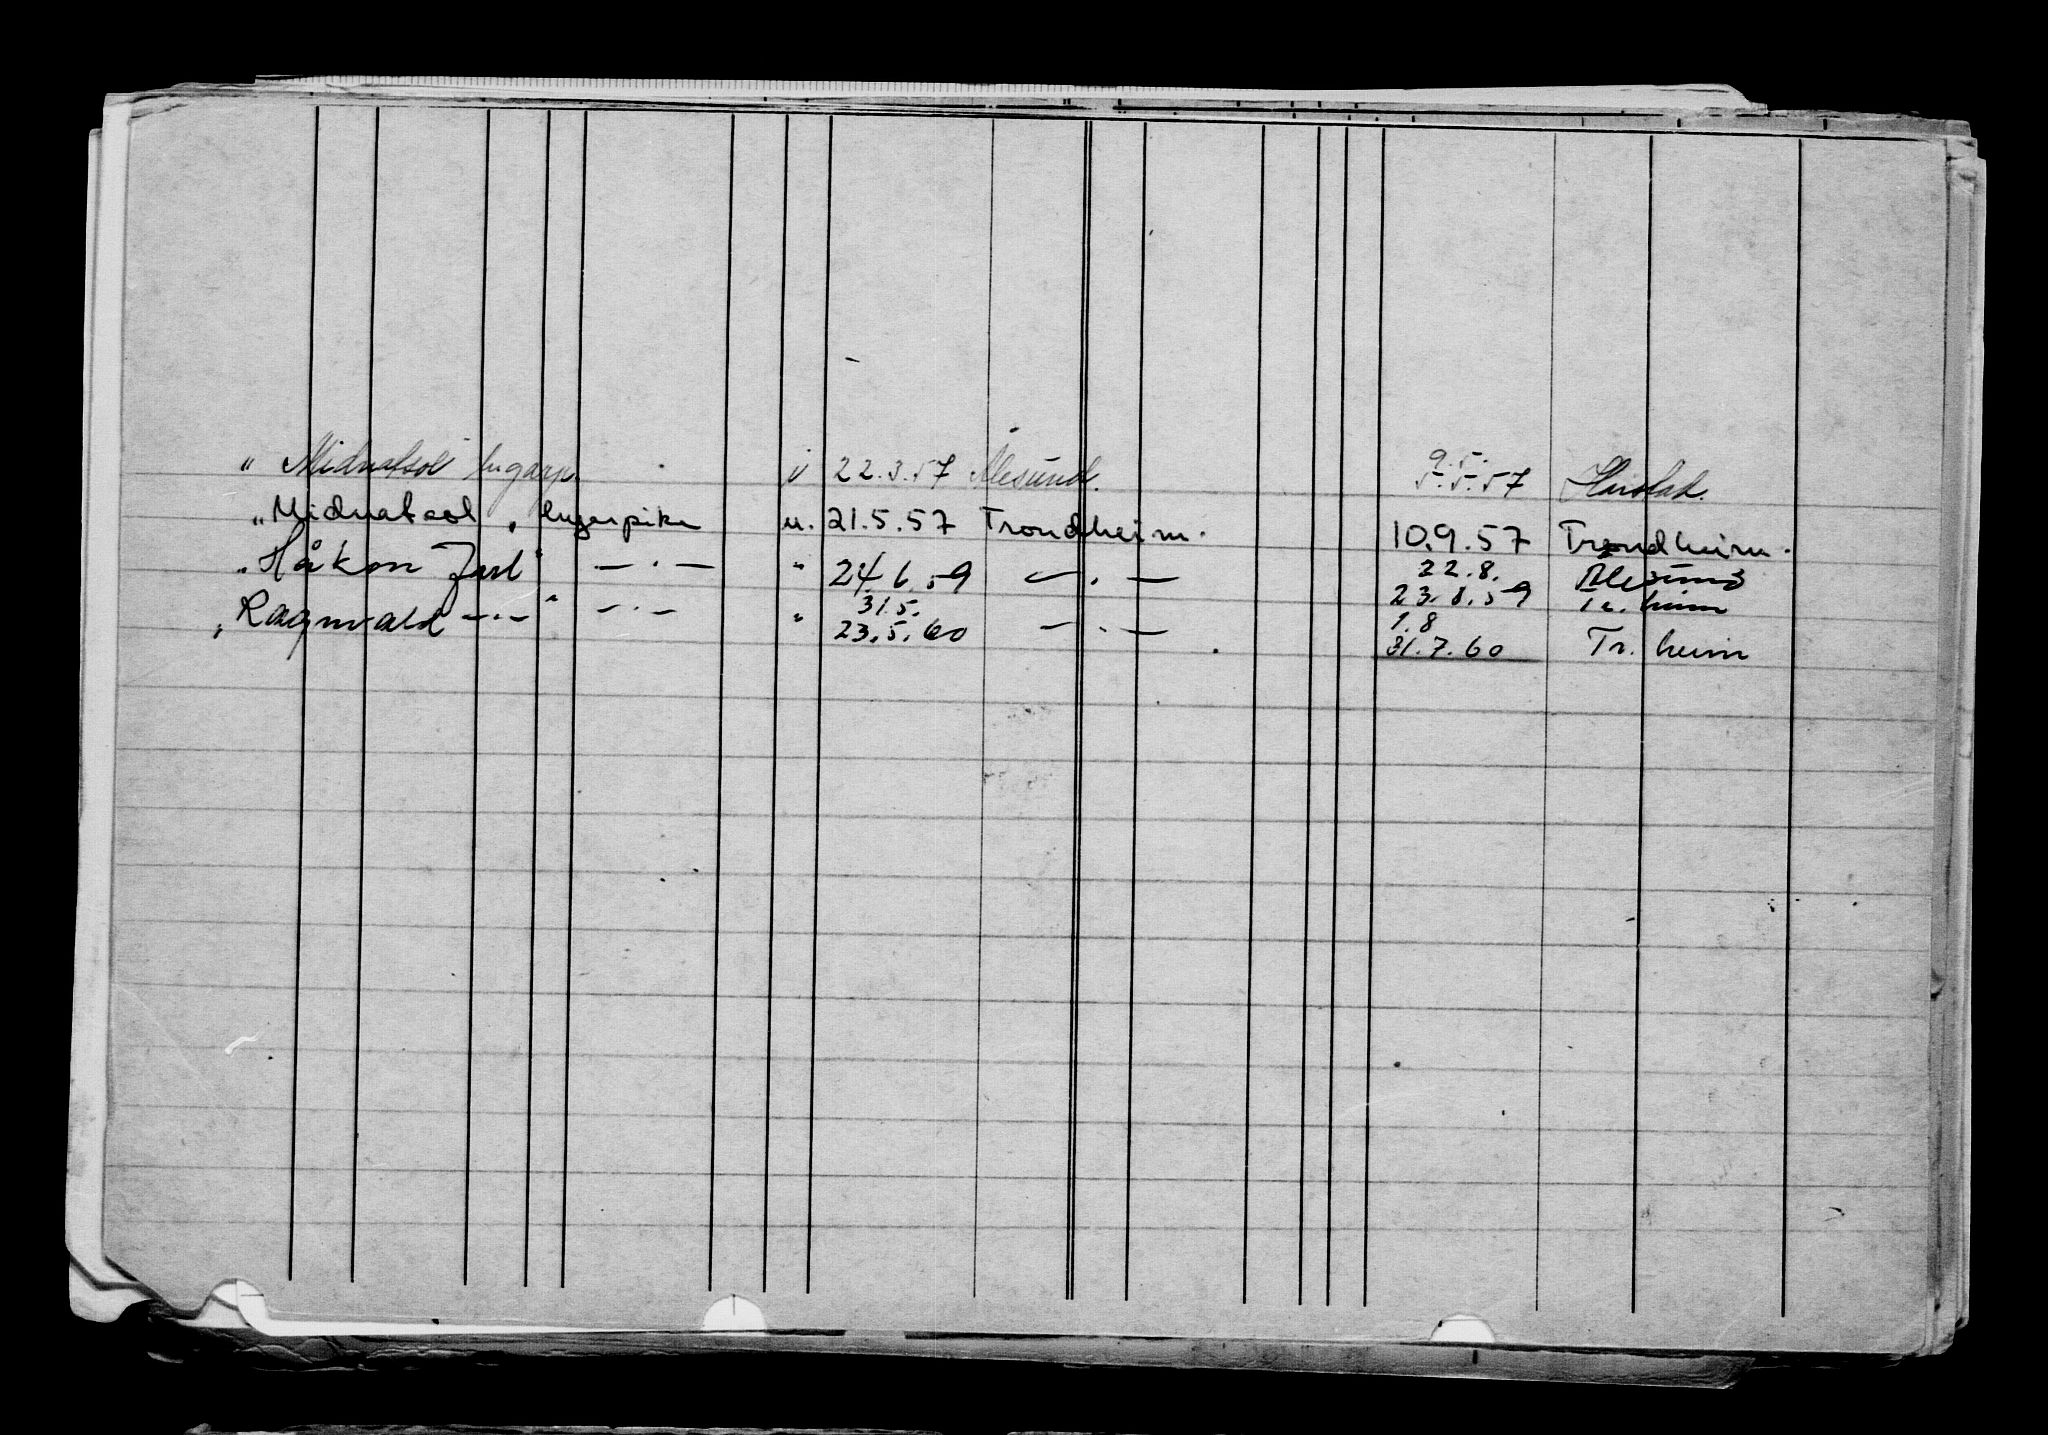 „ Midnatsol" lugarp. i 22.3.57 Ålesund. 9.5. 5.5.57 Harstad.
„Midnatsol", lugarpike u. 21.5.57 Trondheim. 10.9.57 Trondheim.
„Håkon Jarl" — . — " 24.6.59 — . — 22.8. Ålesund
23.8.59 Tr. heim
„Ragnvald —.—" —.— " 31.5. 23.5.60 — . — 1.8 31.7.60 Tr. heim